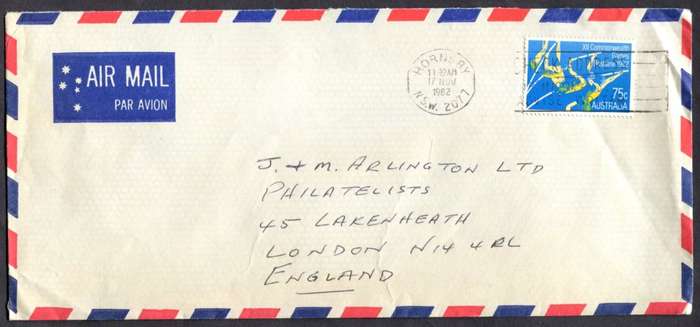 AIR MAIL
PAR AVION
HORNSBY
11:30AM
17 NOV
1982
N.S.W. 2077
XII Commonwealth
Games
Brisbane 1982
75c
AUSTRALIA
J. & M. ARLINGTON LTD
PHILATELISTS
45 LAKENHEATH
LONDON N14 4RL
ENGLAND